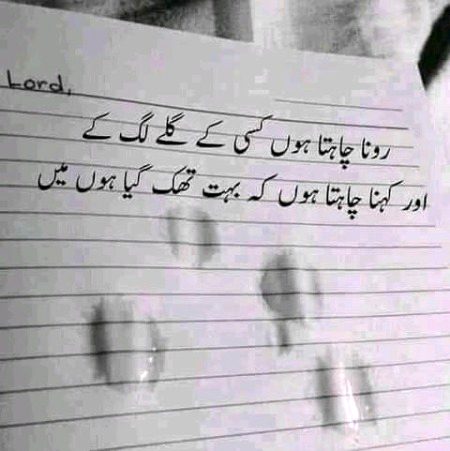 Lord,
رونا چاہتا ہوں کسی کے گلے لگ کے
اور کہنا چاہتا ہوں کہ بہت تھک گیا ہوں میں